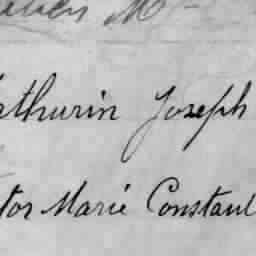 athurin Joseph
tor Marie Constant